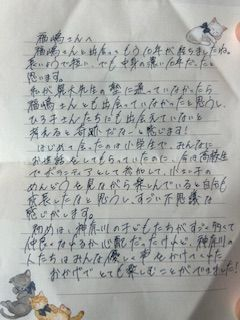 福嶋さんへ
福嶋さんと出会ってもう10年が経ちましたね。
長いようで短い、でも中身の濃い10年だったと
思います。
私が 先生の塾に通っていなかったら
福嶋さんとも出会っていなかったと思うし、
ひろ子さんたちにも出会えていないと
考えると奇跡だなーと感じます!
はじめて会ったのは小学生で、みんなに
お世話をしてもらっていたのに、今は高校生
でボランティアとして参加して、小さい子の
めんどうを見ながら楽しんでいると自分も
成長したなと思うし、すごい不思議な
感じがします。
初めは、神奈川の子どもたちがすごく多くて
仲良くなれるか心配だったけれど、神奈川の
人たちはみんな優しく声をかけてくれた
おかげで とても楽しむことができました!